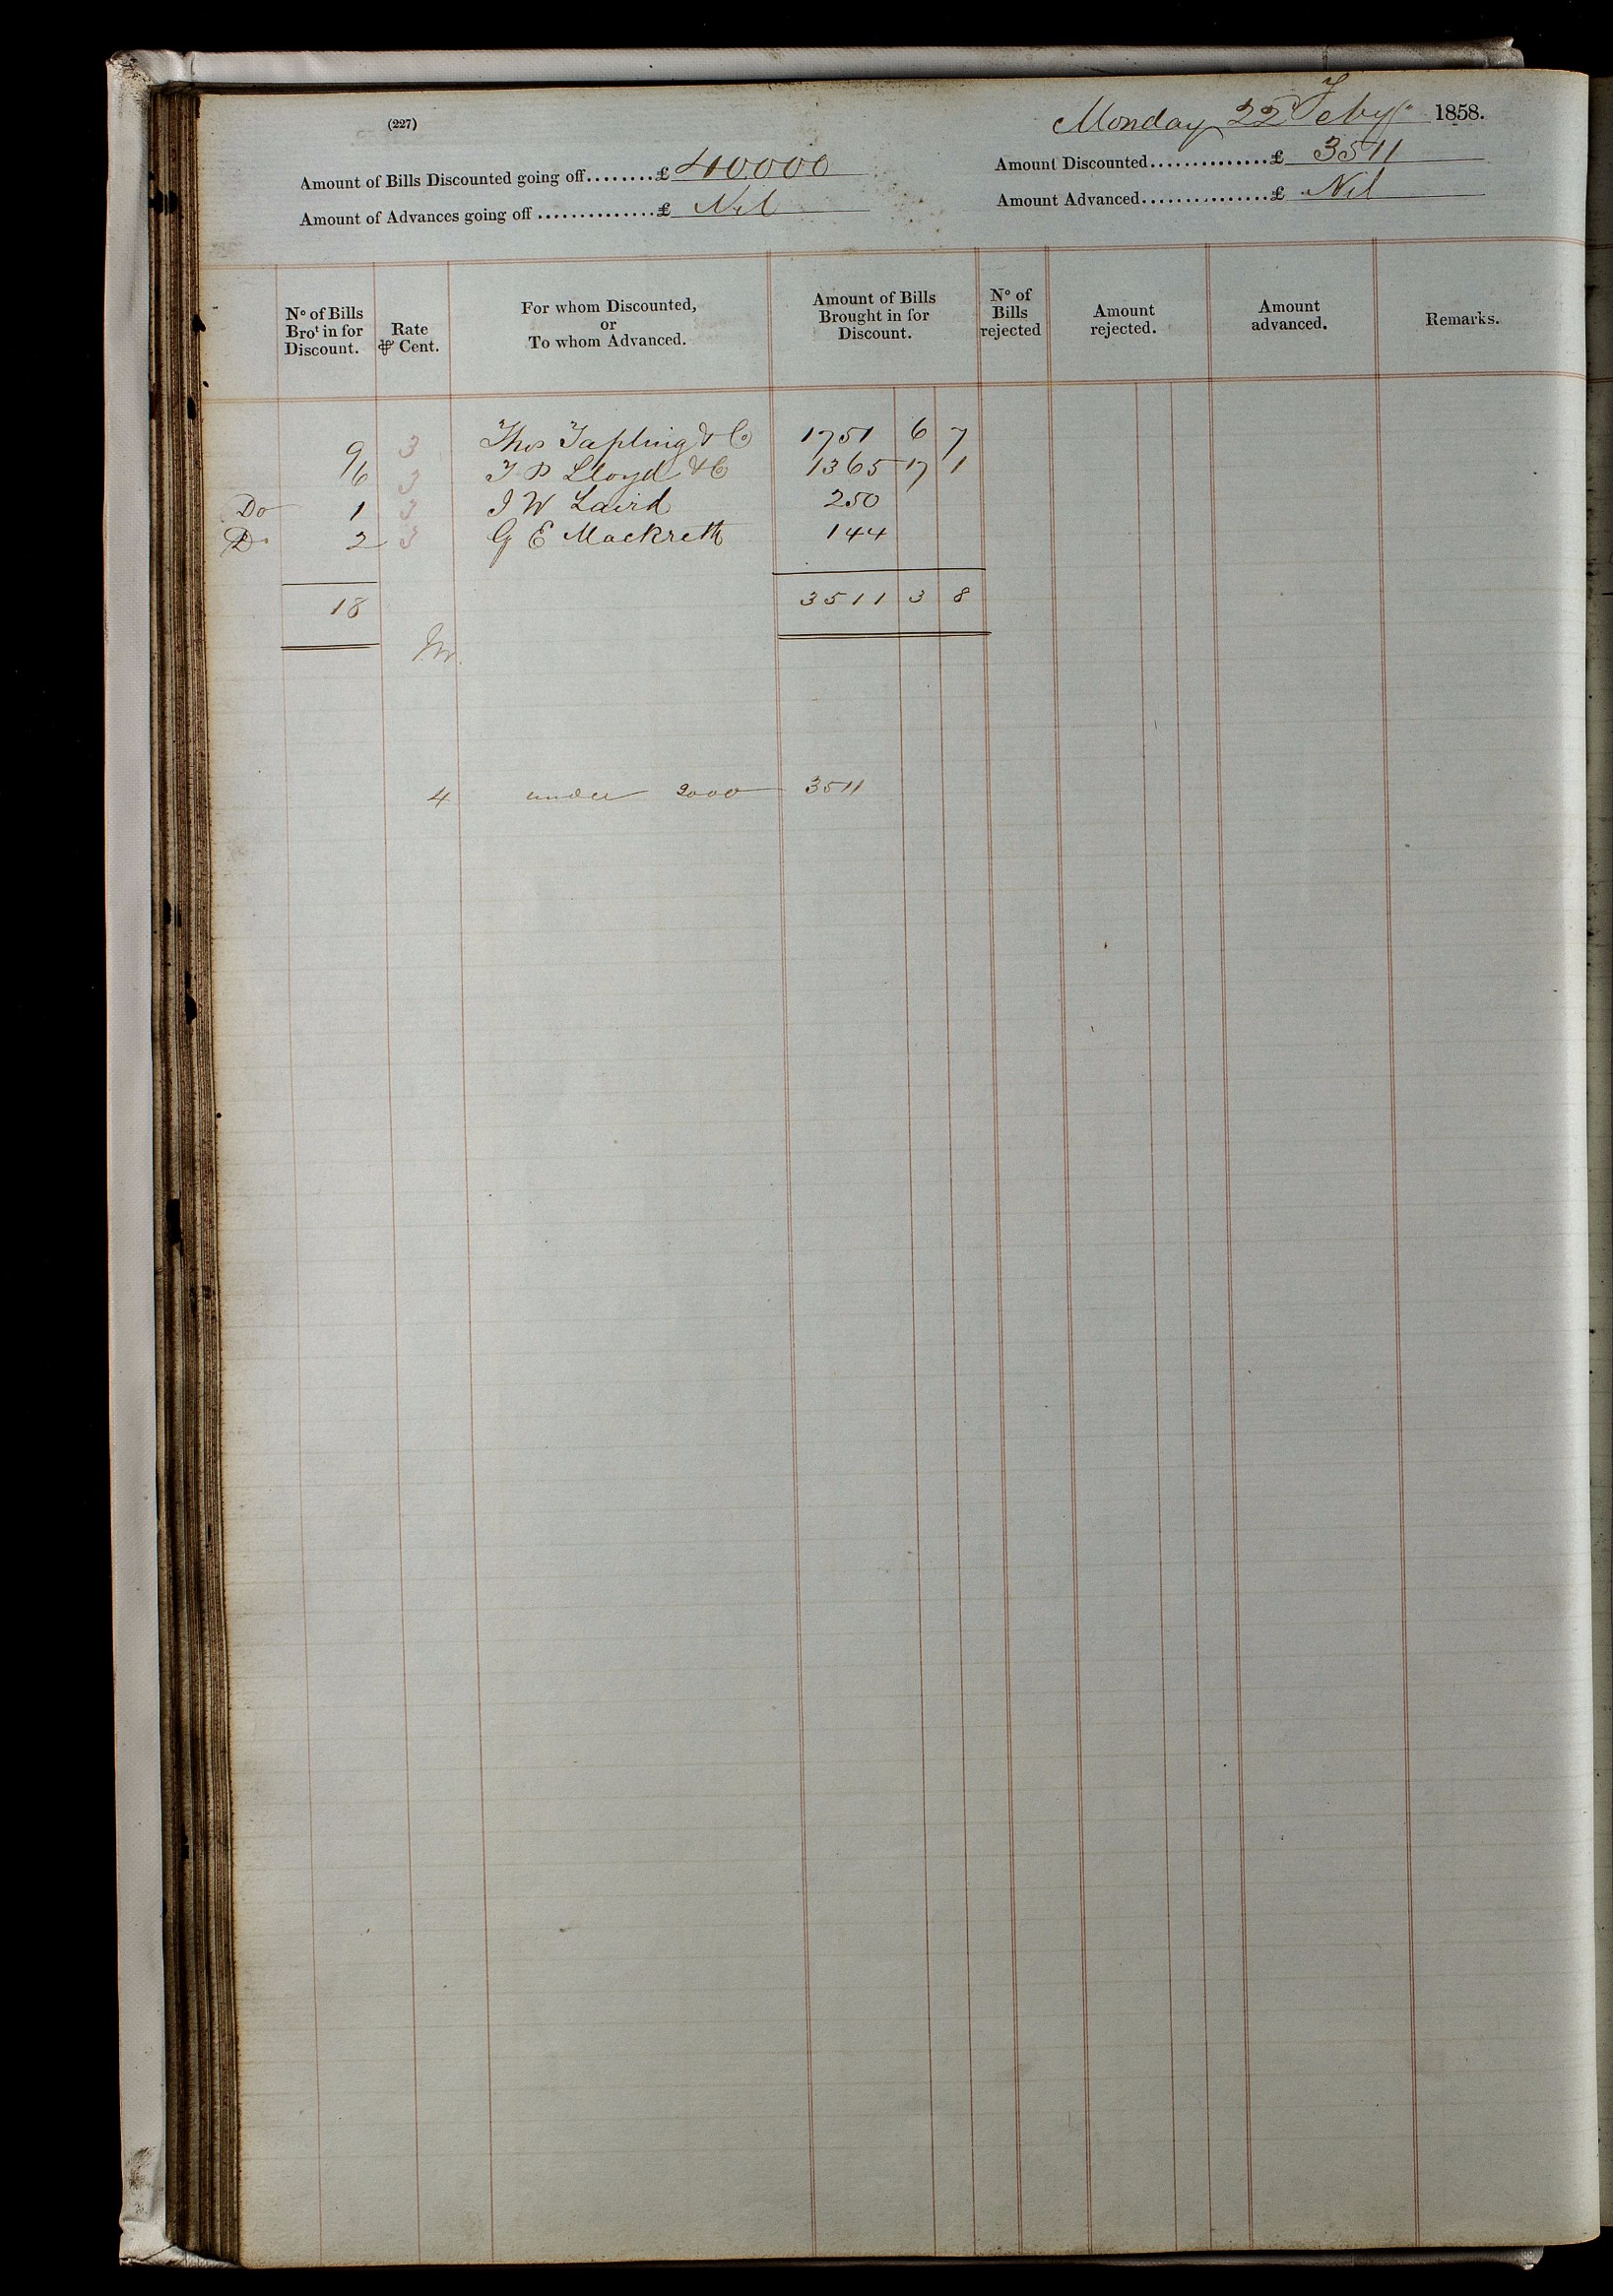 (227)
Monday 22d Feby 1858.
Amount of Bills Discounted going off........£ 40.000
Amount of Advances going off..............£ Nil
Amount Discounted..............£ 3511
Amount Advanced...............£ Nil
No of Bills Brot in for Discount. Rate ⅌ Cent. For whom Discounted, or To whom Advanced. Amount of Bills Brought in for Discount. No of Bills rejected Amount rejected. Amount advanced. Remarks.
9 3 Thos Tapling & Co 1751 6 7
6 3 Lloyd & Co 1365 17 1
Do 1 3 J W Laird 250
Do 2 3 G E Mackreth 144
18 3511 3 8
4 under 2000 3511